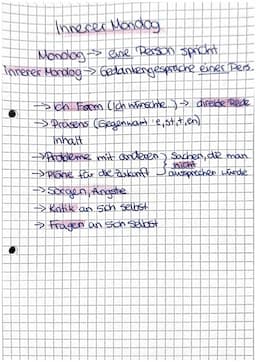 Innerer Monolog
Monolog → eine Person spricht
Innerer Monolog → Gedankengespräche einer Pers.
→ Ich Form (Ich wünsche) → direkte Rede
→ Präsens (Gegenwart e, st, t, en)
Inhalt
→ Probleme mit anderen } Sachen, die man
nicht
→ Pläne für die Zukunft aussprechen würde
→ Sorgen, Ängste
→ Kritik an sich selbst
→ Fragen an sich selbst